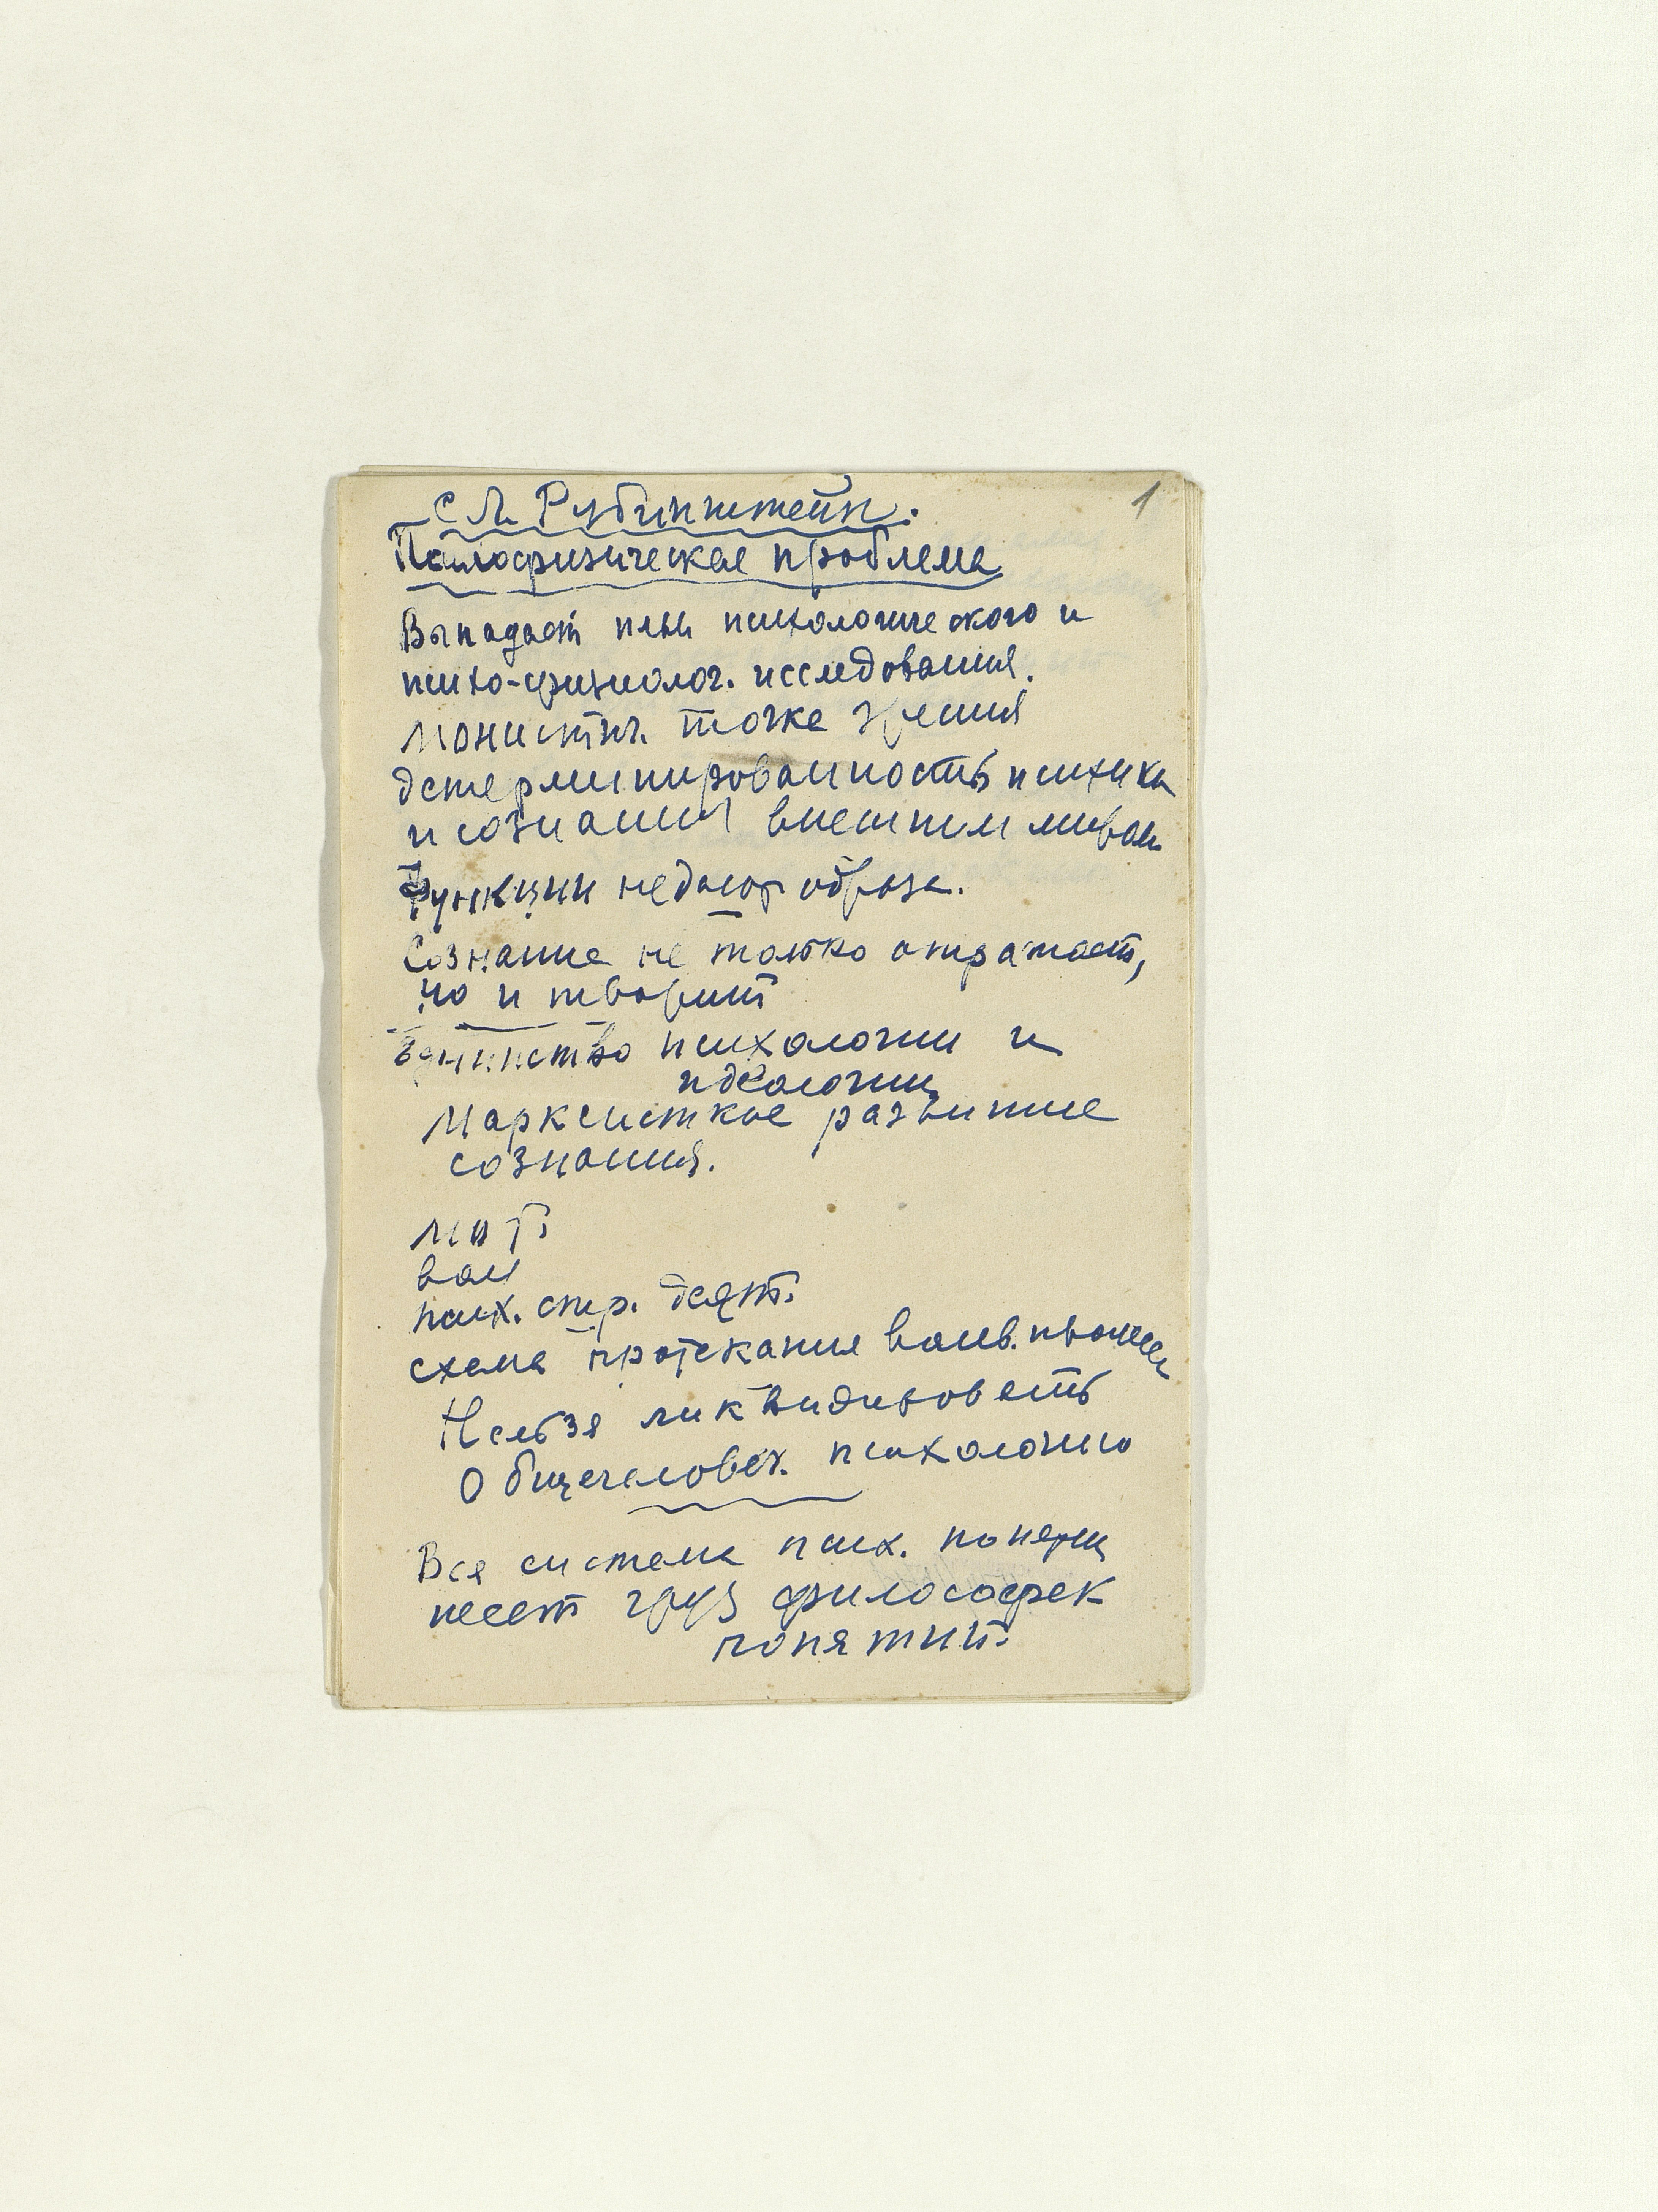 С Л Рубинштейн.
1
Психофизическая проблема
Выпадает психологического и
психо-физиолог. исследования.
Монистич. точка зрения
детерминированность психики
и сознания внешним миром
Функции образа.
Сознание не только отражает,
но и творит
Единство психологии и
идеологии
Марксисткое развитие
сознания.
мот
вол
псих. стр. деят.
схема протекания волев.
Нельзя ликвидировать
Общечеловеч. психологию
Вся система псих. понятий
несет груз философск
понятий.